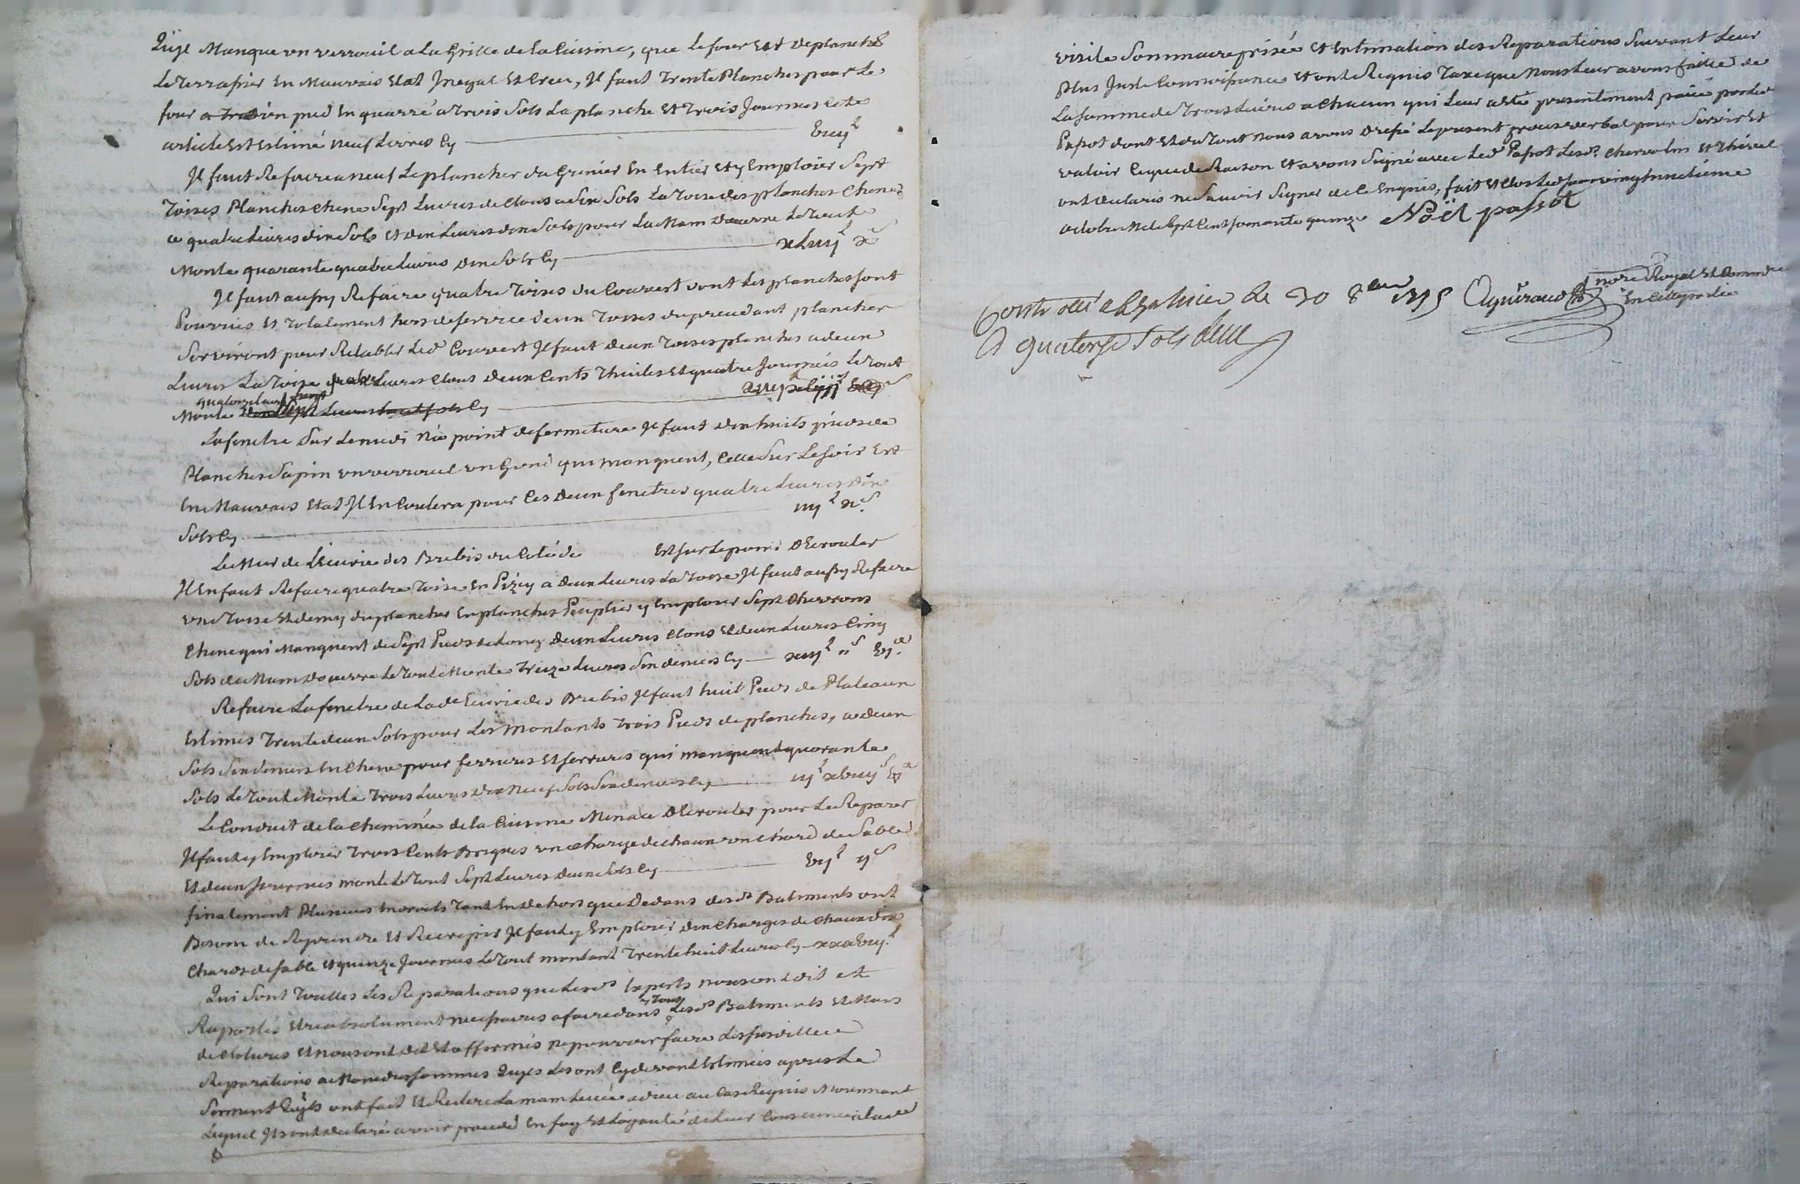 Quil Manque un verrouil a La Grille de la Cuisine, que Le four Est de planché
Le Terrasier En Mauvais Etat Inegal Et Creu, Il faut Trente Planches pour Le
four un pied En quarré a trois Sols La planche Et trois Journées Cet
article Est Estimé neuf Livres Cy
Il faut Refaire a neuf Le plancher du Grenier En Entier Et y Emploier Sept
Toises Planches Chene Sept Livres de Clous a Six Sols La Toise des planches Chene
a quatre Livres dix Sols Et dix Livres dix Sols pour La Main d'œuvre Le Tout
Monte quarante quatre Livres dix Sols Cy xLiiij l x s
Il faut aussy Refaire quatre Toises du Couvert dont Les planches sont
Pourries Et Totalement hors de service deux Toises du precedant plancher
Serviront pour Retablir Led Couvert Il faut deux Toises planches a deux
Livres La Toise quatre Livres Clous deux Cents Thuiles Et quatre Journées Le Tout
Monte Cy
La fenetre Sur Le midi n'a point de fermeture Il faut dix huits pieds de
Planches Sapin un verrouil un Gond qui manquent, Celle Sur Le soir Est
En Mauvais Etat Il En Coutera pour Ces deux fenetres quatre Livres dix
Sols Cy iiij l x s
Le Mur de L'Ecurie des Brebis du Coté de Est sur Le point d'Ecrouler
Il En faut Refaire quatre Toise En Pizey a deux Livres La Toise Il faut aussy Refaire
une Toise Et demy du plancher En planches Peuplier y Emploier Sept Chevrons
Chene qui Manquent de Sept Pieds de Long deux Livres Clous Et deux Livres Cinq
Sols de Main d'œuvre Le Tout Monte Treize Livres Six deniers Cy
Refaire La fenetre de Lad Ecurie des Brebis Il faut huit Pieds de Plateaux
Estimés Trente deux Sols pour Les Montants Trois Pieds de planches, a deux
Sols Six deniers En Chene pour ferrures Et serrures qui manquent quarante
Sols Le Tout Monte Trois Livres dix Neuf Sols Six deniers Cy
Le Conduit de la Cheminée de la Cuisine Menace d'Ecrouler pour Le Reparer
Il faut y Emploier Trois Cents Briques une Charge de Chaux un Chard de Sable
Et deux Journées monte Le Tout Sept Livres deux Sols Cy
finalement Plusieurs Endroits Tant En dehors que Dedans desd Batiments ont
Besoin de Reprendre Et Recrepir Il faut y Emploier dix Charges de Chaux dix
Chards de sable Et quinze Journées Le Tout montant Trente huit Livres Cy xxxviij l
Qui Sont Toutes Les Reparations que Lesd Experts nous ont dit et
Raporté Etre absolument necessaires a faire dans Tous Lesd Batiments Et Murs
de Clotures Et nous ont dit Et affirmés ne pouvoir faire
Reparations a Moindes sommes Quils Les ont Cy devant Estimés apres Le
Serment Quils ont fait Et Reiteré La main Levée a dieu au Cas Requis Moiennant
Lequel Ils ont declaré avoir procedé En foy Et Loyauté de Leur Conscience a Lade
visite Sommaire prisée Et Estimation des Reparations Suivant Leur
Plus Juste Connoissance Et ont Requis Taxe que Nous Leur avons faitte de
La somme de Trois Livres a Chacun qui Leur a Eté presentement païée par Led
Papot dont Et du Tout nous avons dressé Le present proces verbal pour Servir Et
valoir Ce que de Raison Et avons Signé avec Led Papot Lesd Chervolin Et Thévet
ont declaré ne Savoir Signer de Ce Enquis, fait Et Clos Led Jour vingt neufieme
octobre Mil Sept Cent Soixante quinze Noël passot
Controllé a le 30 8bre 1775
R quatorze sols
Royal Et
En Cette partie